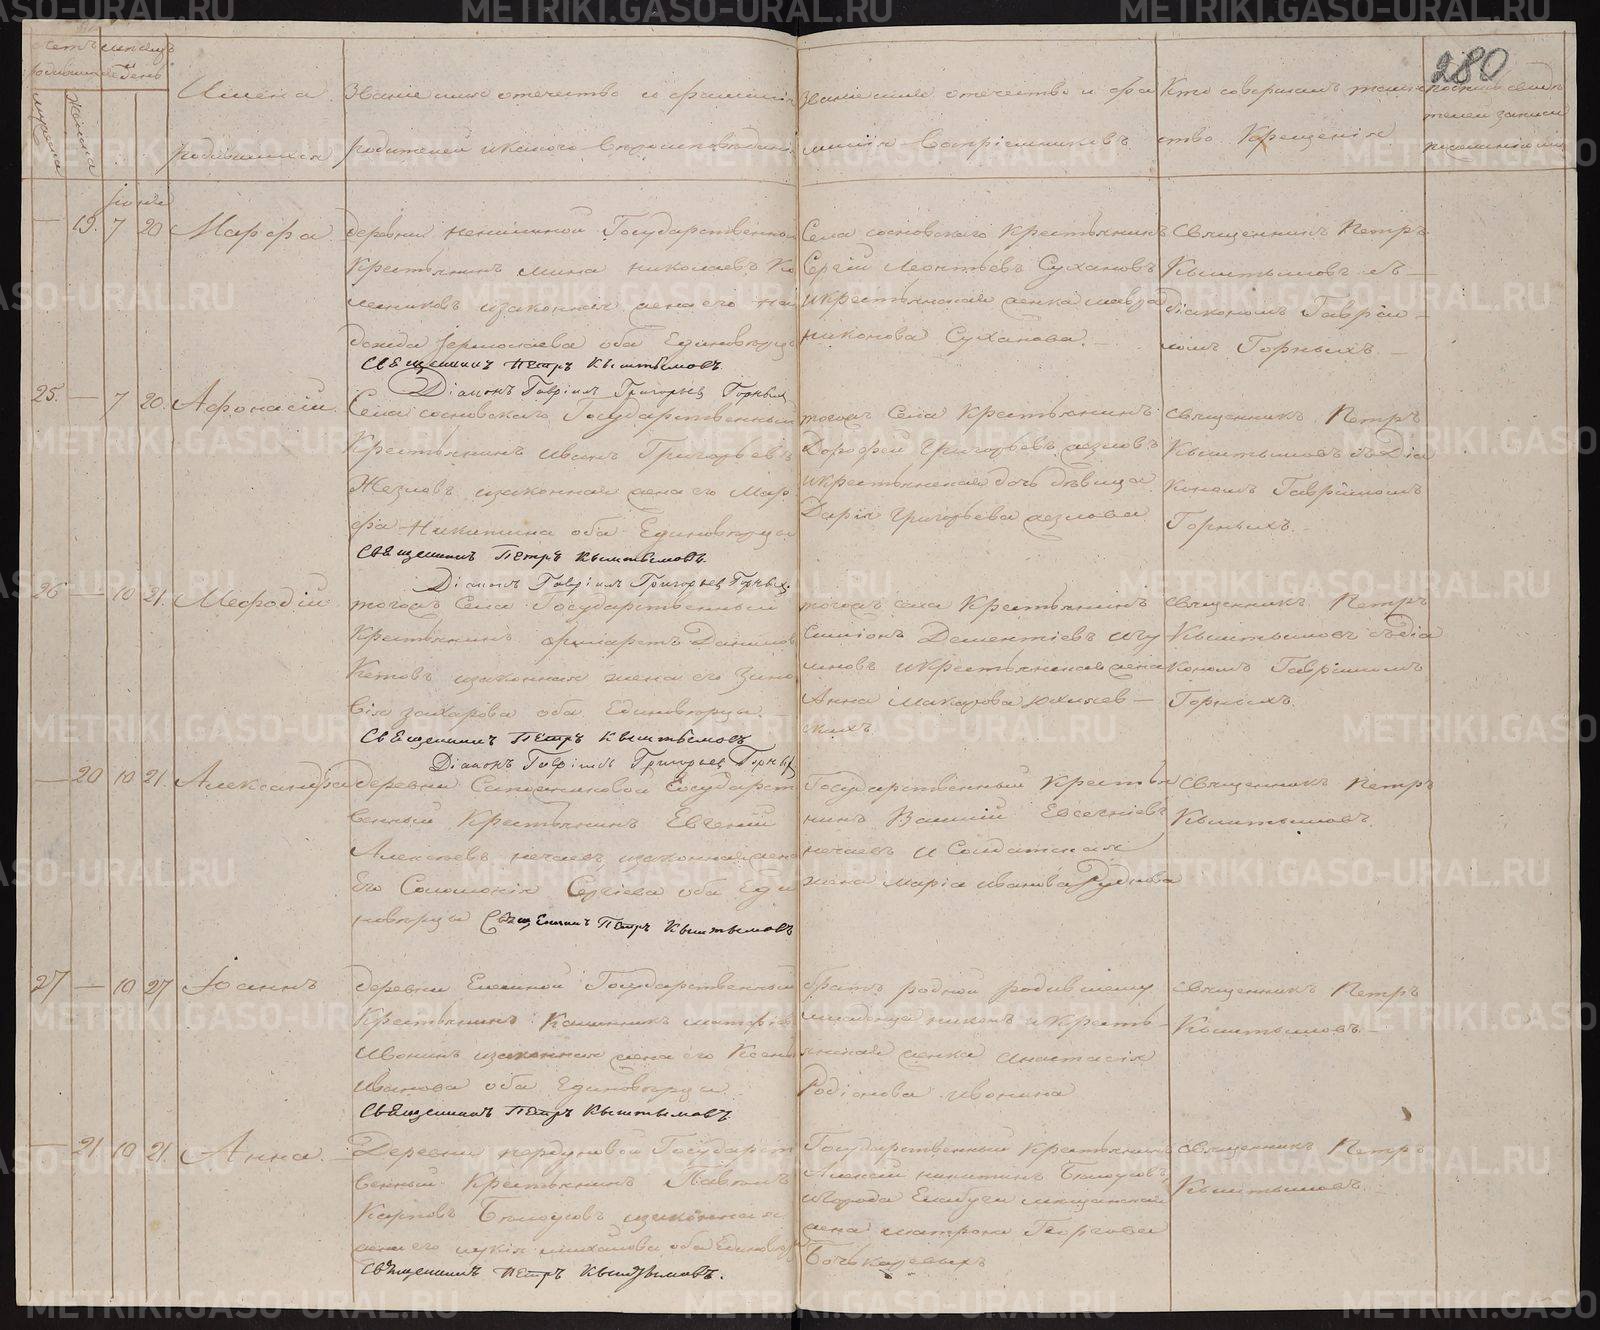 280
Счетъ
родившихся
Мѣсяцъ
и день
мужеска
женска
Имена
родившихся
Званіе имя отечество и фамилія
родителей и какого вѣроисповѣданія
Званіе имя отечество и фа
милія Воспріемниковъ
Кто совершалъ таин
ство Крещенія
Июня
— 19. 7 20 Марфа
деревни Государственной
Крестьянинъ Мина Николаевъ Ко
лесниковъ и законная жена его На
дежда Ермолаева оба Единовѣрцы
Священникъ Петръ Кыштымовъ
Діаконъ Гавріилъ Григорьевъ Горныхъ
Села Сосновскаго Крестьянинъ
Сергій Леонтьевъ Сухановъ
и крестьянская женка Мавра
Никонова Суханова. —
Священникъ Петръ
Кыштымовъ съ —
діакономъ Гавріи —
ломъ Горныхъ —
25. — 7 20. Афонасій
Села Сосновскаго Государственный
Крестьянинъ Иванъ Григорьевъ
Жезловъ и законная жена его Мар
фа Никитина оба Единовѣрцы
Священникъ Петръ Кыштымовъ.
Діаконъ Гавріилъ Григорьевъ Горныхъ.
тогожъ Села Крестьянинъ
Дорофей Григорьевъ Жезловъ
и крестьянская дочь дѣвица
Дарія Григорьева Жезлова
Священникъ Петръ
Кыштымовъ съ Діа
кономъ Гавріиломъ
Горныхъ. —
26 — 10 21. Меѳодій
тогожъ Села Государственный
Крестьянинъ Филаретъ Даниловъ
Кетовъ и законная жена его Зино
вія Захарова оба Единовѣрцы.
Священникъ Петръ Кыштымовъ
Діаконъ Гавріилъ Григорьевъ Горныхъ
тогожъ села Крестьянинъ
Симіонъ Дементіевъ Игу
мновъ и Крестьянская жена
Анна Макарова
Священникъ Петръ
Кыштымовъ съ діа
кономъ Гавріиломъ
Горныхъ.
— 20 10 21. Александра
деревни Сапожниковой Государст
венный Крестьянинъ Евгеній
Алексѣевъ Нечаевъ и законная жена
Его Соломонія Сергіева оба Еди
новѣрцы Священникъ Петръ Кыштымовъ
Государственный Крестья
нинъ Василій Евсегніевъ
Нечаевъ и Солдатская
жена Марія Иванова Рудкова
Священникъ Петръ
Кыштымовъ.
27 — 10 27 Іоаннъ
деревни Государственный
Крестьянинъ Калинникъ
Ивонинъ и законная жена его Ксенія
Иванова оба Единовѣрцы
Священникъ Петръ Кыштымовъ.
братъ родной родившему
младенца Никонъ и Кресть —
янская женка Анастасія
Родіонова Ивонина
Священникъ Петръ
Кыштымовъ. —
— 21. 10 21. Анна. —
Деревни Государст
венный Крестьянинъ Павелъ
Карповъ Бѣлоусовъ и законная
жена его Лукія Михайлова оба Единовѣрцы
Священникъ Петръ Кыштымовъ.
Государственный Крестьянинъ
Алексій Никитинъ Бѣлоусовъ,
и города Елабуги мещанская
жена Матрона Георгіева
Бочькаревыхъ
Священникъ Петръ
Кыштымовъ.
METRIKI.GASO-URAL.RU